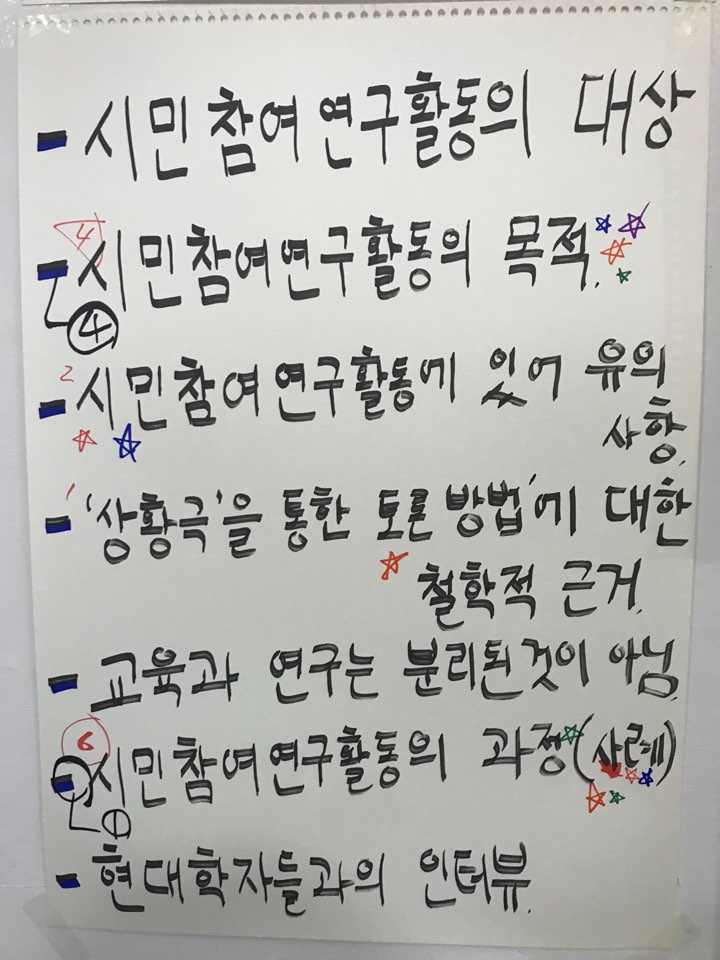 - 시민참여연구활동의 대상
4
- 시민참여연구활동의 목적.
④
2
- 시민참여연구활동에 있어 유의
사항.
1
- '상황극'을 통한 토론방법'에 대한
철학적 근거.
- 교육과 연구는 분리된것이 아님.
6
- 시민참여연구활동의 과정(사례)
①
- 현대학자들과의 인터뷰.